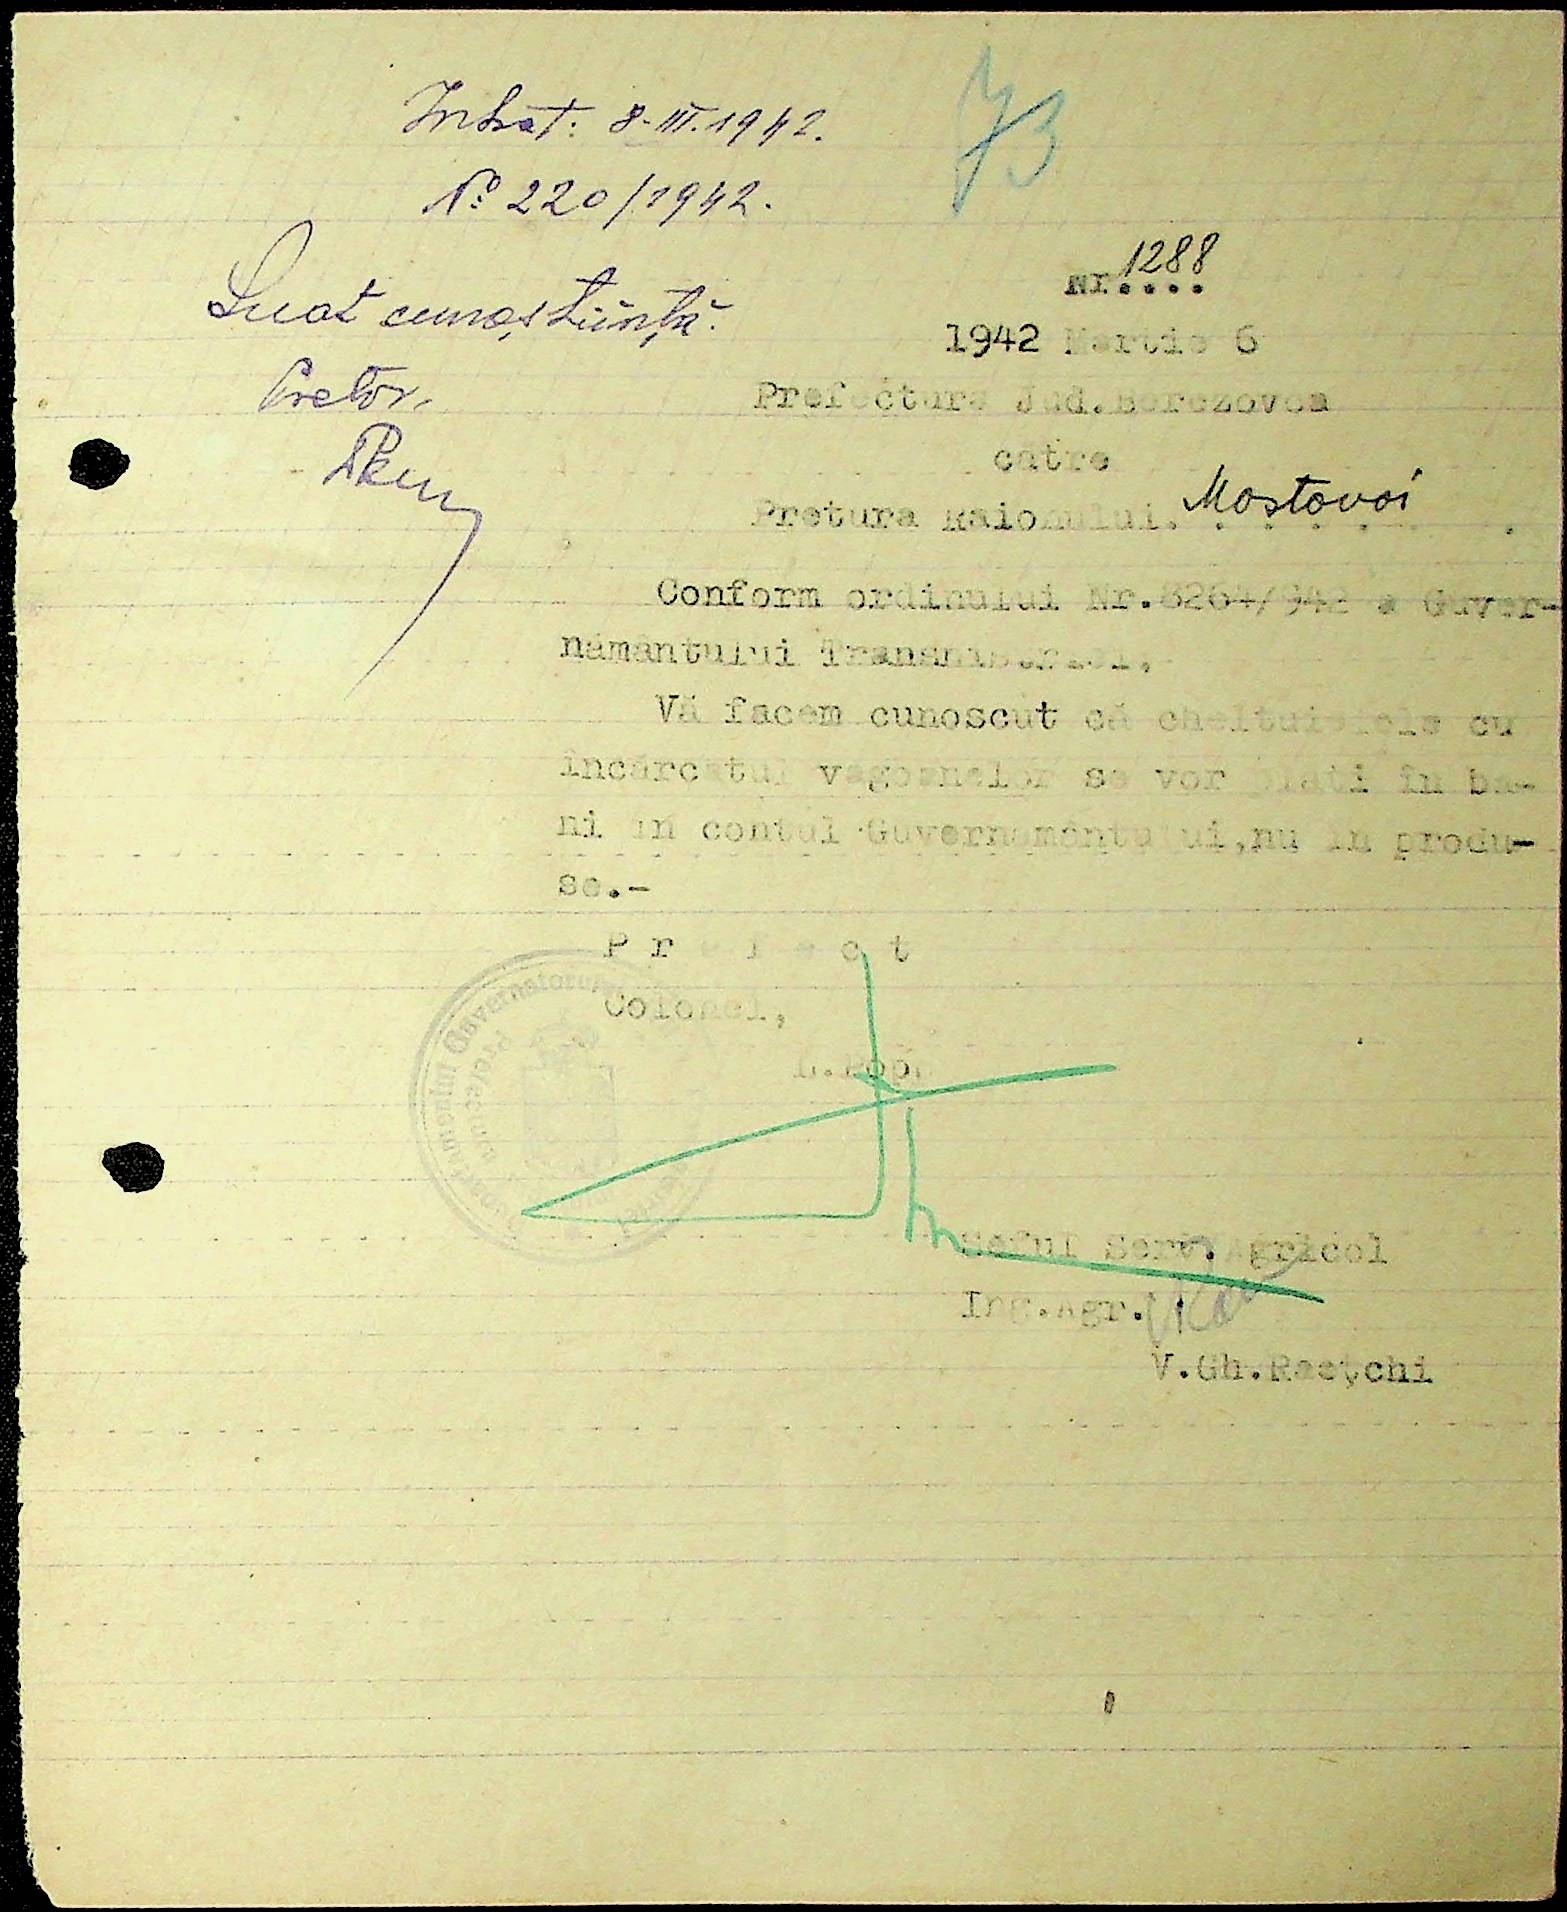 Intrat: 8-III.1942.
73
No 220/1942.
Luat cunoștiință.
Pretor,
Nr. 1288
1942 Martie 6
Prefectura Jud. Berezovca
catre
Pretura Raionului. Mostovoi
Conform ordinului Nr.8264/942 a Guver-
nământului Transnistriei,
Vă facem cunoscut că cheltuielele cu
încărcatul vagoanelor se vor plati în ba-
ni în contul Guvernamântului,nu în produ-
se.-
P r e f e c t
Colonel,
Guvernatorului
Prefectura
L.Pop
Seful Serv.Agricol
Ing.Agr.
V.Gh.Rașchi